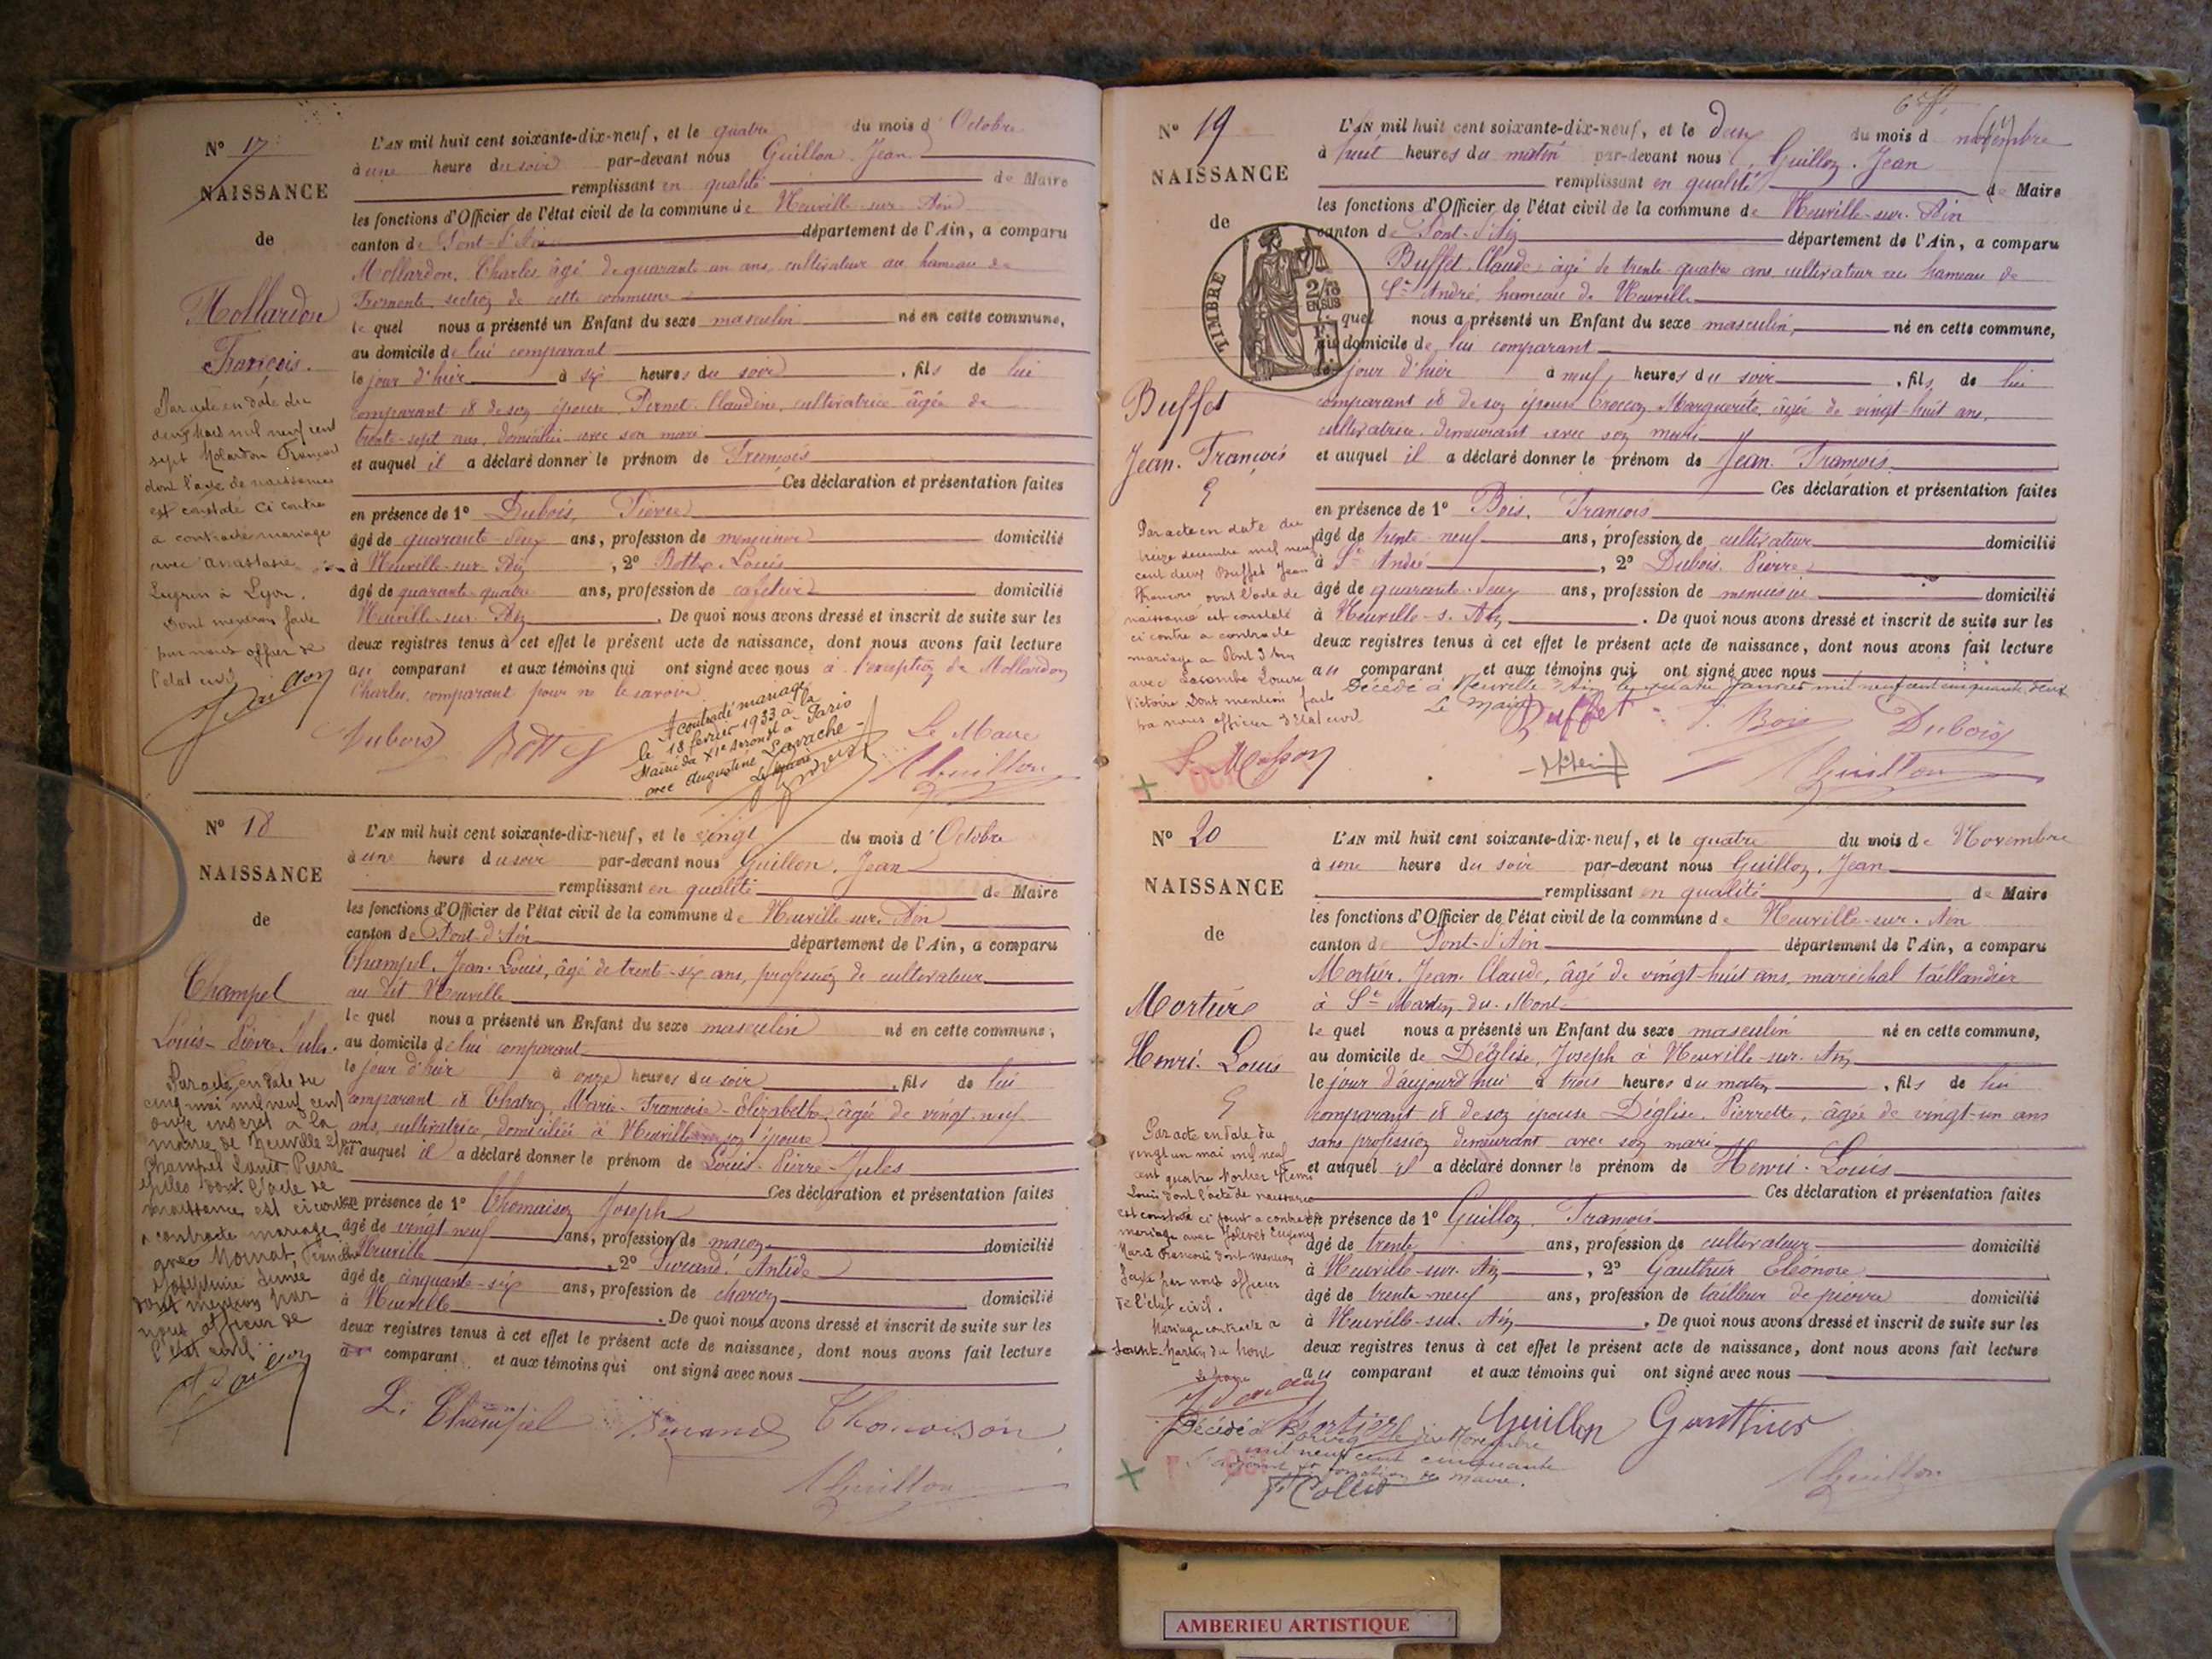 N° 17
NAISSANCE
de
Mollardon
François.
Par acte en date du
deux mars mil neuf cent
sept Molardon François
dont l'acte de naissance
est constaté ci contre
a contracté mariage
avec Anastasie
Lugrin à Lyon.
Dont mention faite
par nous officier de
l'état civil
L'AN mil huit cent soixante-dix-neuf, et le quatre du mois d'Octobre
à une heure du soir par-devant nous Guillon, Jean
remplissant en qualité de Maire
les fonctions d'Officier de l'état civil de la commune de Neuville-sur-Ain
canton de Pont-d'Ain département de l'Ain, a comparu
Mollardon, Charles âgé de quarante un ans, cultivateur au hameau de
Fromente, section de cette commune
le quel nous a présenté un Enfant du sexe masculin né en cette commune,
au domicile de lui comparant
le jour d'hier à six heures du soir, fils de lui
comparant et de son épouse, Pernet, Claudine, cultivatrice âgée de
trente-sept ans, domiciliée avec son mari
et auquel il a déclaré donner le prénom de François
Ces déclaration et présentation faites
en présence de 1° Dubois, Pierre
âgé de quarante-deux ans, profession de menuisier domicilié
à Neuville-sur-Ain, 2° Bottex Louis
âgé de quarante-quatre ans, profession de cafetier domicilié
Neuville-sur-Ain. De quoi nous avons dressé et inscrit de suite sur les
deux registres tenus à cet effet le présent acte de naissance, dont nous avons fait lecture
au comparant et aux témoins qui ont signé avec nous à l'exception de Mollardon
Charles, comparant pour ne le savoir
A contracté mariage
le 18 février 1933 à la
Mairie du XIe arrond. à Paris
avec Augustine Lavache
Le Maire
Dubois Bottex Le Maire
Guillon
N° 18
NAISSANCE
de
Champel
Louis-Pierre-Jules.
Par acte en date du
cinq mai mil neuf cent
onze inscrit à la
mairie de Neuville s/Ain
Champel Louis Pierre
Jules dont l'acte de
naissance est ci contre
a contracté mariage
avec Mornat,
Joséphine
dont mention par
nous officier de
l'état civil
L'AN mil huit cent soixante-dix-neuf, et le vingt du mois d'Octobre
à une heure du soir par-devant nous Guillon, Jean
remplissant en qualité de Maire
les fonctions d'Officier de l'état civil de la commune de Neuville-sur-Ain
canton de Pont-d'Ain département de l'Ain, a comparu
Champel, Jean-Louis, âgé de trente-six ans, profession de cultivateur
au dit Neuville
le quel nous a présenté un Enfant du sexe masculin né en cette commune,
au domicile de lui comparant
le jour d'hier à onze heures du soir, fils de lui
comparant et Chatron, Marie-Françoise-Elizabeth, âgée de vingt-neuf
ans, cultivatrice, domiciliée à Neuville avec son époux
et auquel il a déclaré donner le prénom de Louis-Pierre-Jules
Ces déclaration et présentation faites
en présence de 1° Thomaison Joseph
âgé de vingt neuf ans, profession de maçon domicilié
à Neuville, 2° Durand, Antide
âgé de cinquante-six ans, profession de charron domicilié
à Neuville. De quoi nous avons dressé et inscrit de suite sur les
deux registres tenus à cet effet le présent acte de naissance, dont nous avons fait lecture
au comparant et aux témoins qui ont signé avec nous
L. Champel Durand Thomaison
Guillon
N° 19
NAISSANCE
de
TIMBRE
2/10
EN SUS
Buffet
Jean-François
Par acte en date du
treize décembre mil neuf
cent deux Buffet Jean
François dont l'acte de
naissance est constaté
ci contre a contracté
mariage à Pont d'Ain
avec Lacombe Louise
Victoire Dont mention faite
par nous officier d'Etat civil
L'AN mil huit cent soixante-dix-neuf, et le deux du mois d novembre
à huit heures du matin par-devant nous Guillon, Jean
remplissant en qualité de Maire
les fonctions d'Officier de l'état civil de la commune de Neuville-sur-Ain
canton de Pont-d'Ain département de l'Ain, a comparu
Buffet, Claude, âgé de trente-quatre ans cultivateur au hameau de
St André, hameau de Neuville
le quel nous a présenté un Enfant du sexe masculin, né en cette commune,
au domicile de lui comparant
le jour d'hier à neuf heures du soir, fils de lui
comparant et de son épouse Marguerite, âgée de vingt-huit ans,
cultivatrice, demeurant avec son mari
et auquel il a déclaré donner le prénom de Jean-François
Ces déclaration et présentation faites
en présence de 1° Bois, François
âgé de trente-neuf ans, profession de cultivateur domicilié
à St André, 2° Dubois, Pierre
âgé de quarante-deux ans, profession de menuisier domicilié
à Neuville-s-Ain. De quoi nous avons dressé et inscrit de suite sur les
deux registres tenus à cet effet le présent acte de naissance, dont nous avons fait lecture
au comparant et aux témoins qui ont signé avec nous
Décédé à Neuville s/Ain le quatre Janvier mil neuf cent cinquante deux
Le Maire
Buffet F. Bois Dubois
Guillon
N° 20
NAISSANCE
de
Mortier
Henri-Louis
Par acte en date du
vingt un mai mil neuf
cent quatre Mortier Henri
Louis dont l'acte de naissance
est constaté ci joint a contracté
mariage avec Jolivet Eugénie
Marie Françoise dont mention
faite par nous officier
de l'état civil.
Mariage contracté à
Saint Martin du Mont
Le Maire
L'AN mil huit cent soixante-dix-neuf, et le quatre du mois de Novembre
à une heure du soir par-devant nous Guillon, Jean
remplissant en qualité de Maire
les fonctions d'Officier de l'état civil de la commune de Neuville-sur-Ain
canton de Pont-d'Ain département de l'Ain, a comparu
Mortier, Jean-Claude, âgé de vingt-huit ans, maréchal taillandier
à St Martin-du-Mont
le quel nous a présenté un Enfant du sexe masculin né en cette commune,
au domicile de Déglise, Joseph à Neuville-sur-Ain
le jour d'aujourd'hui à trois heures du matin, fils de lui
comparant et de son épouse Déglise, Pierrette, âgée de vingt-un ans
sans profession demeurant avec son mari
et auquel il a déclaré donner le prénom de Henri-Louis
Ces déclaration et présentation faites
en présence de 1° Guillon, François
âgé de trente ans, profession de cultivateur domicilié
à Neuville-sur-Ain, 2° Gauthier Eléonore
âgé de trente-neuf ans, profession de tailleur de pierre domicilié
à Neuville-sur-Ain. De quoi nous avons dressé et inscrit de suite sur les
deux registres tenus à cet effet le présent acte de naissance, dont nous avons fait lecture
au comparant et aux témoins qui ont signé avec nous
Mortier Guillon Gauthier
Décédé à Bourg le dix Novembre
mil neuf cent cinquante
Collet
Guillon
AMBERIEU ARTISTIQUE